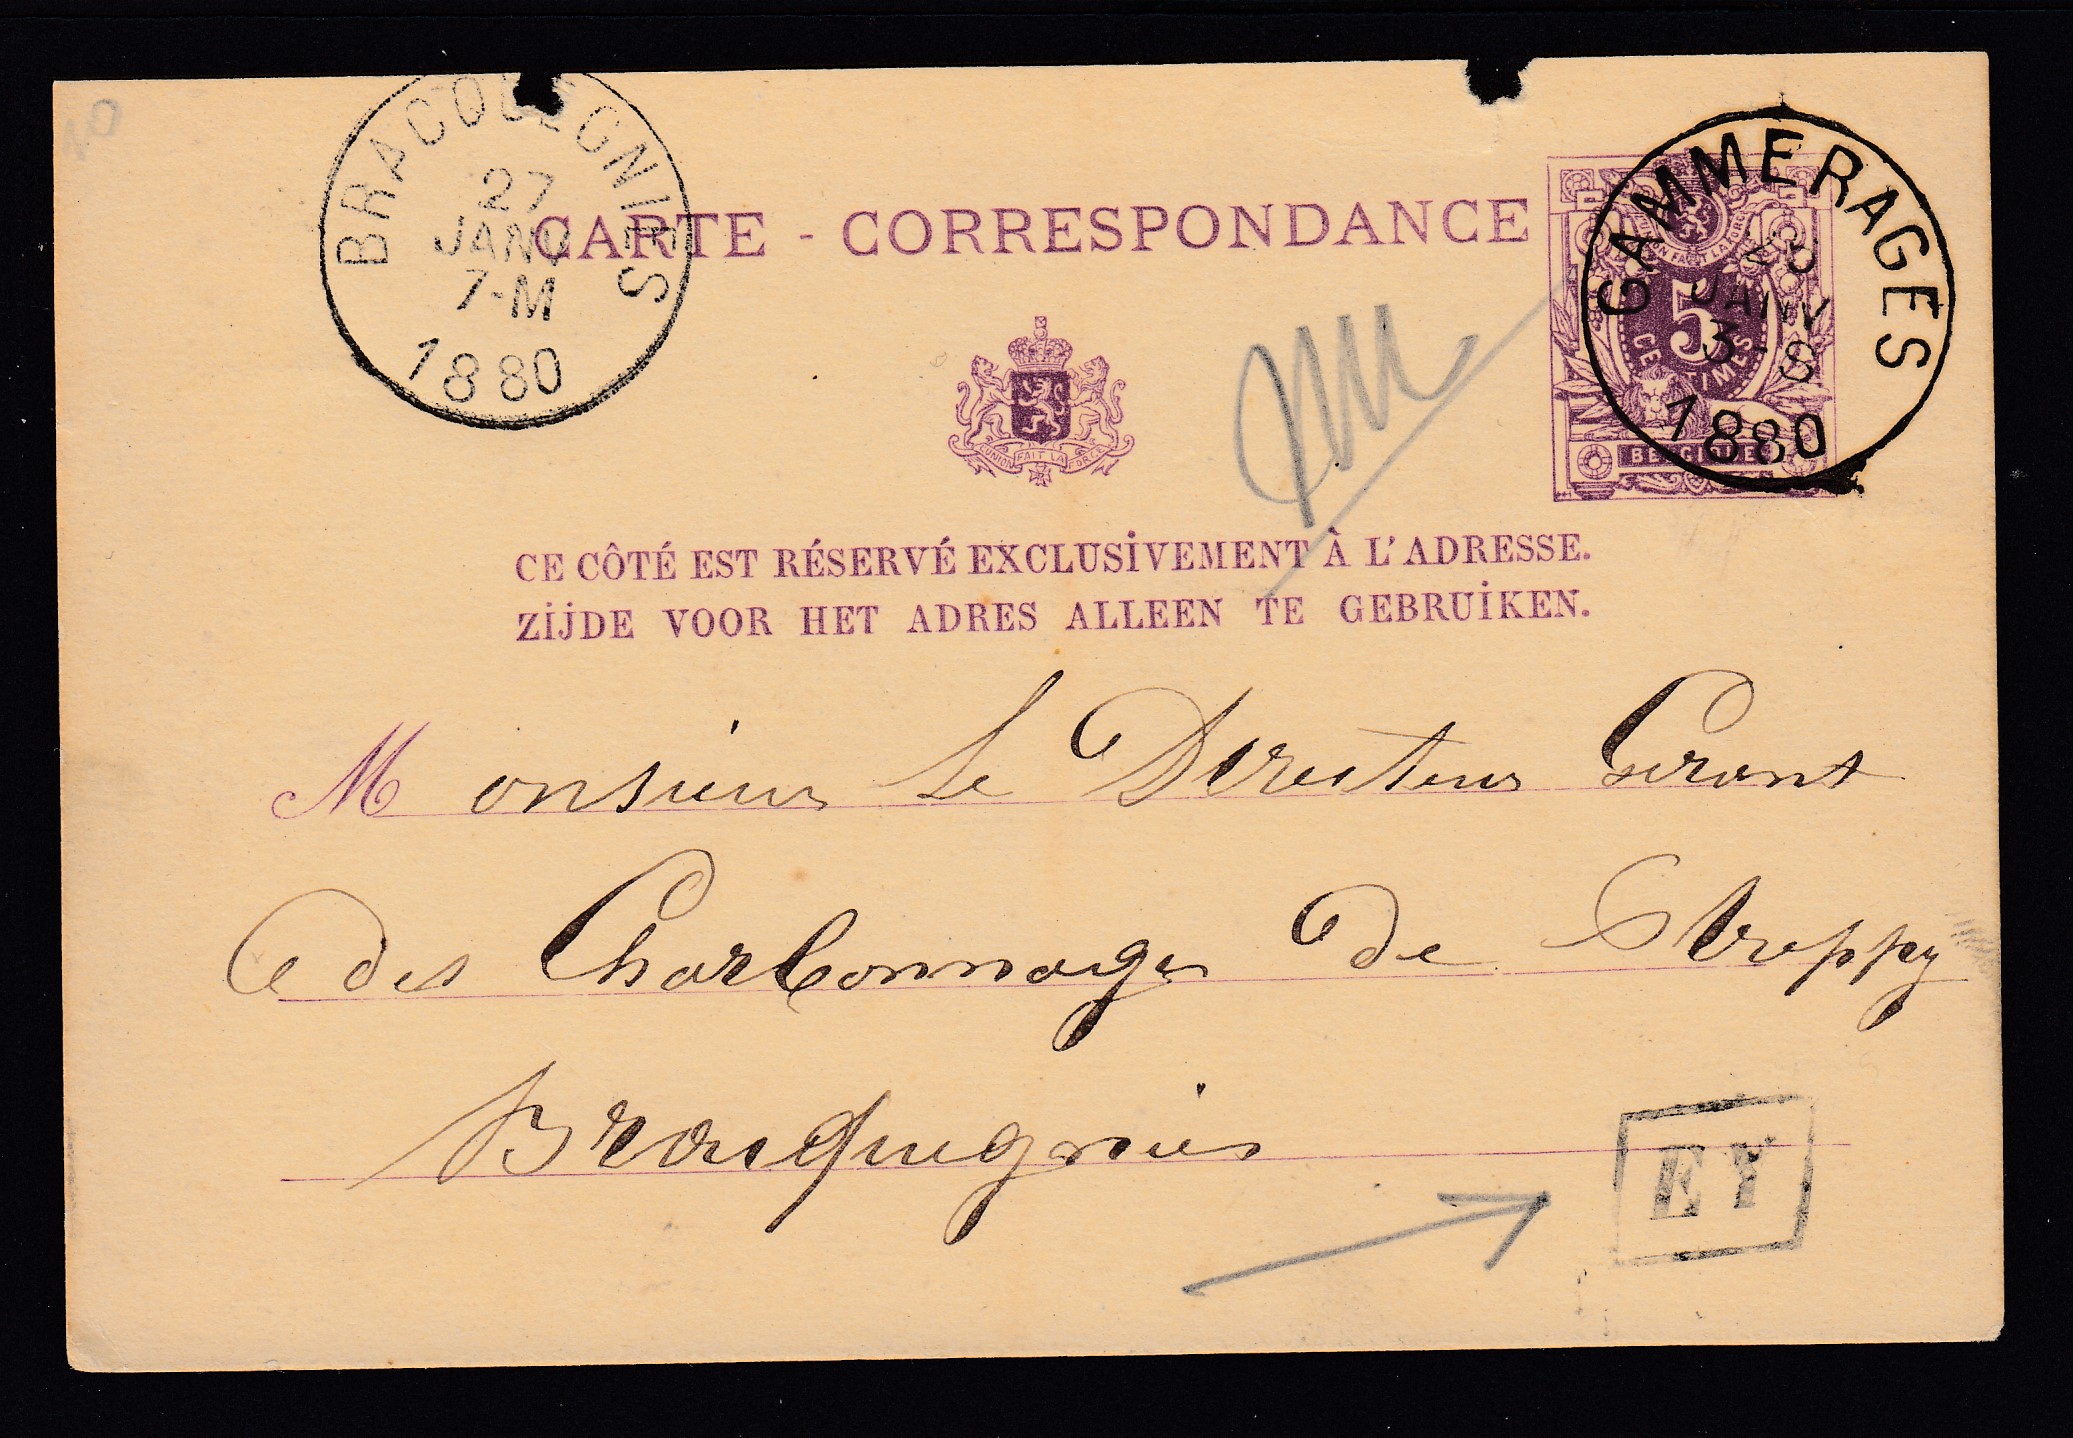 BRACQUEGNIES
27
JANV
7-M
1880
CARTE - CORRESPONDANCE
L'UNION FAIT LA FORCE
GAMMERAGES
JANV
3 S
1880
5
CENTIMES
BELGIQUE
CE CÔTÉ EST RÉSERVÉ EXCLUSIVEMENT À L'ADRESSE.
ZIJDE VOOR HET ADRES ALLEEN TE GEBRUIKEN.
Monsieur Le Directeur Gerant
des Charbonnages de Streppy
Bracquegnies
EY